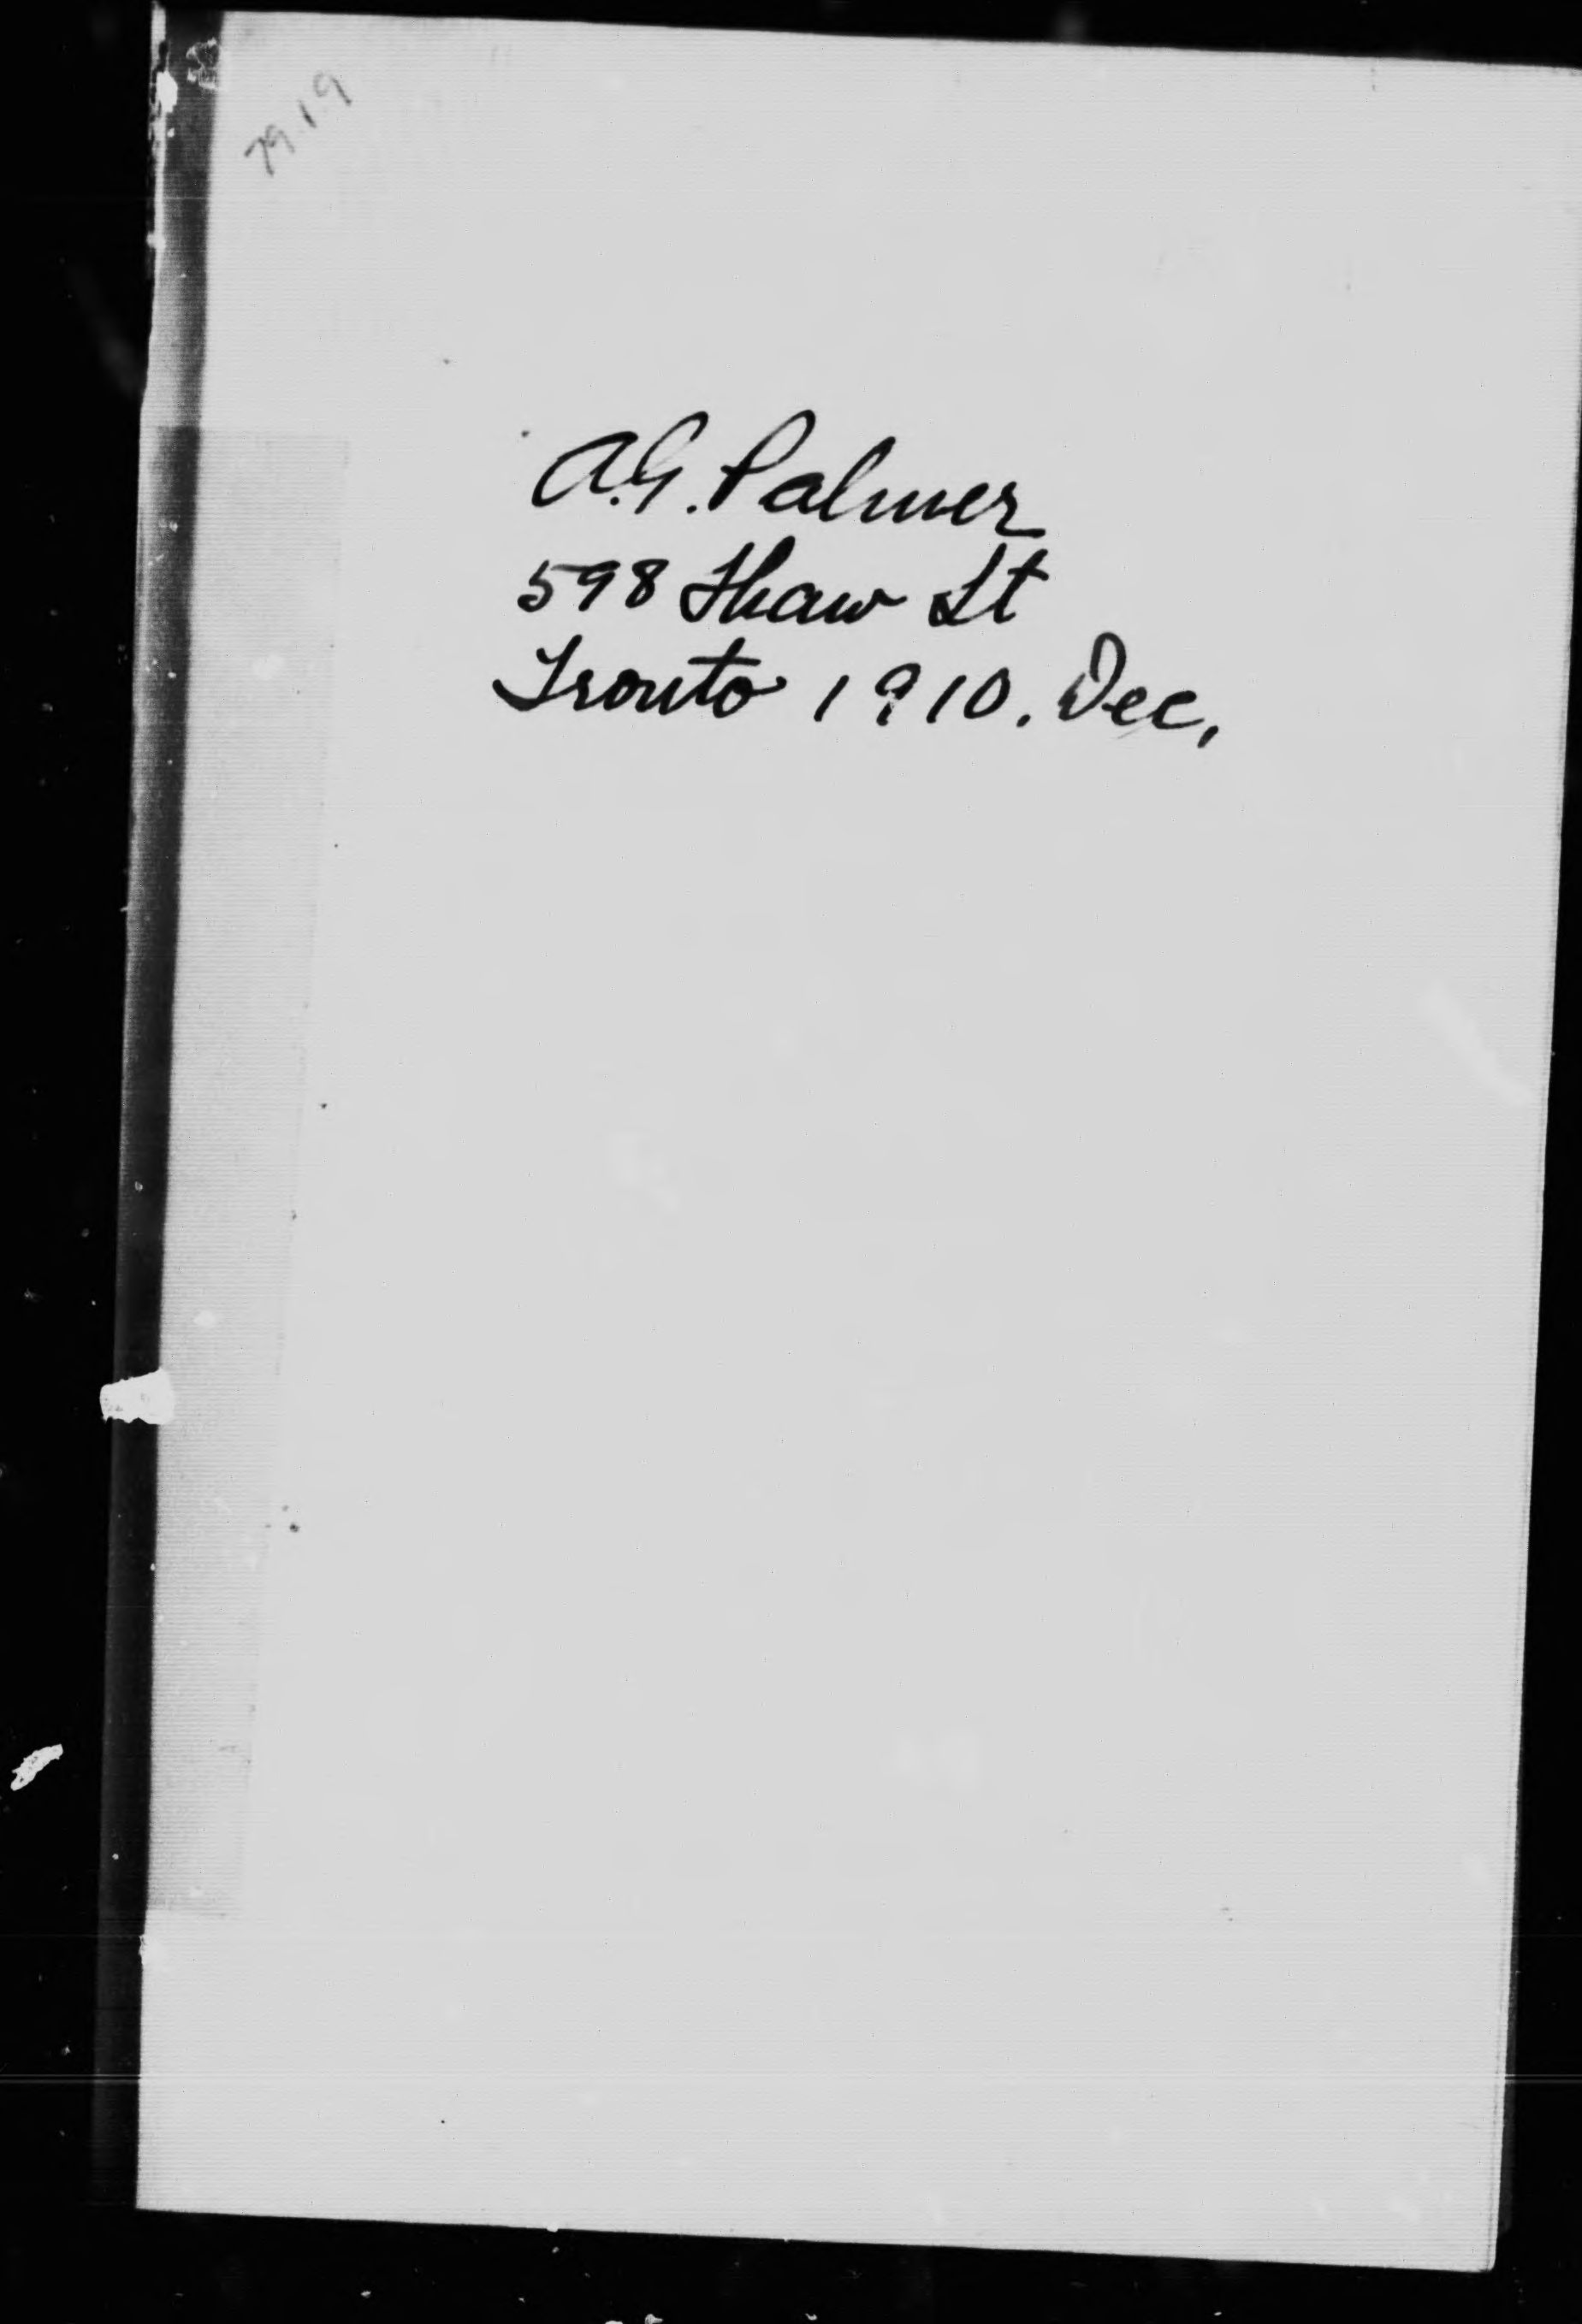 79.1.9
A.G. Palmer
598 Shaw St
Tronto 1910. Dec,